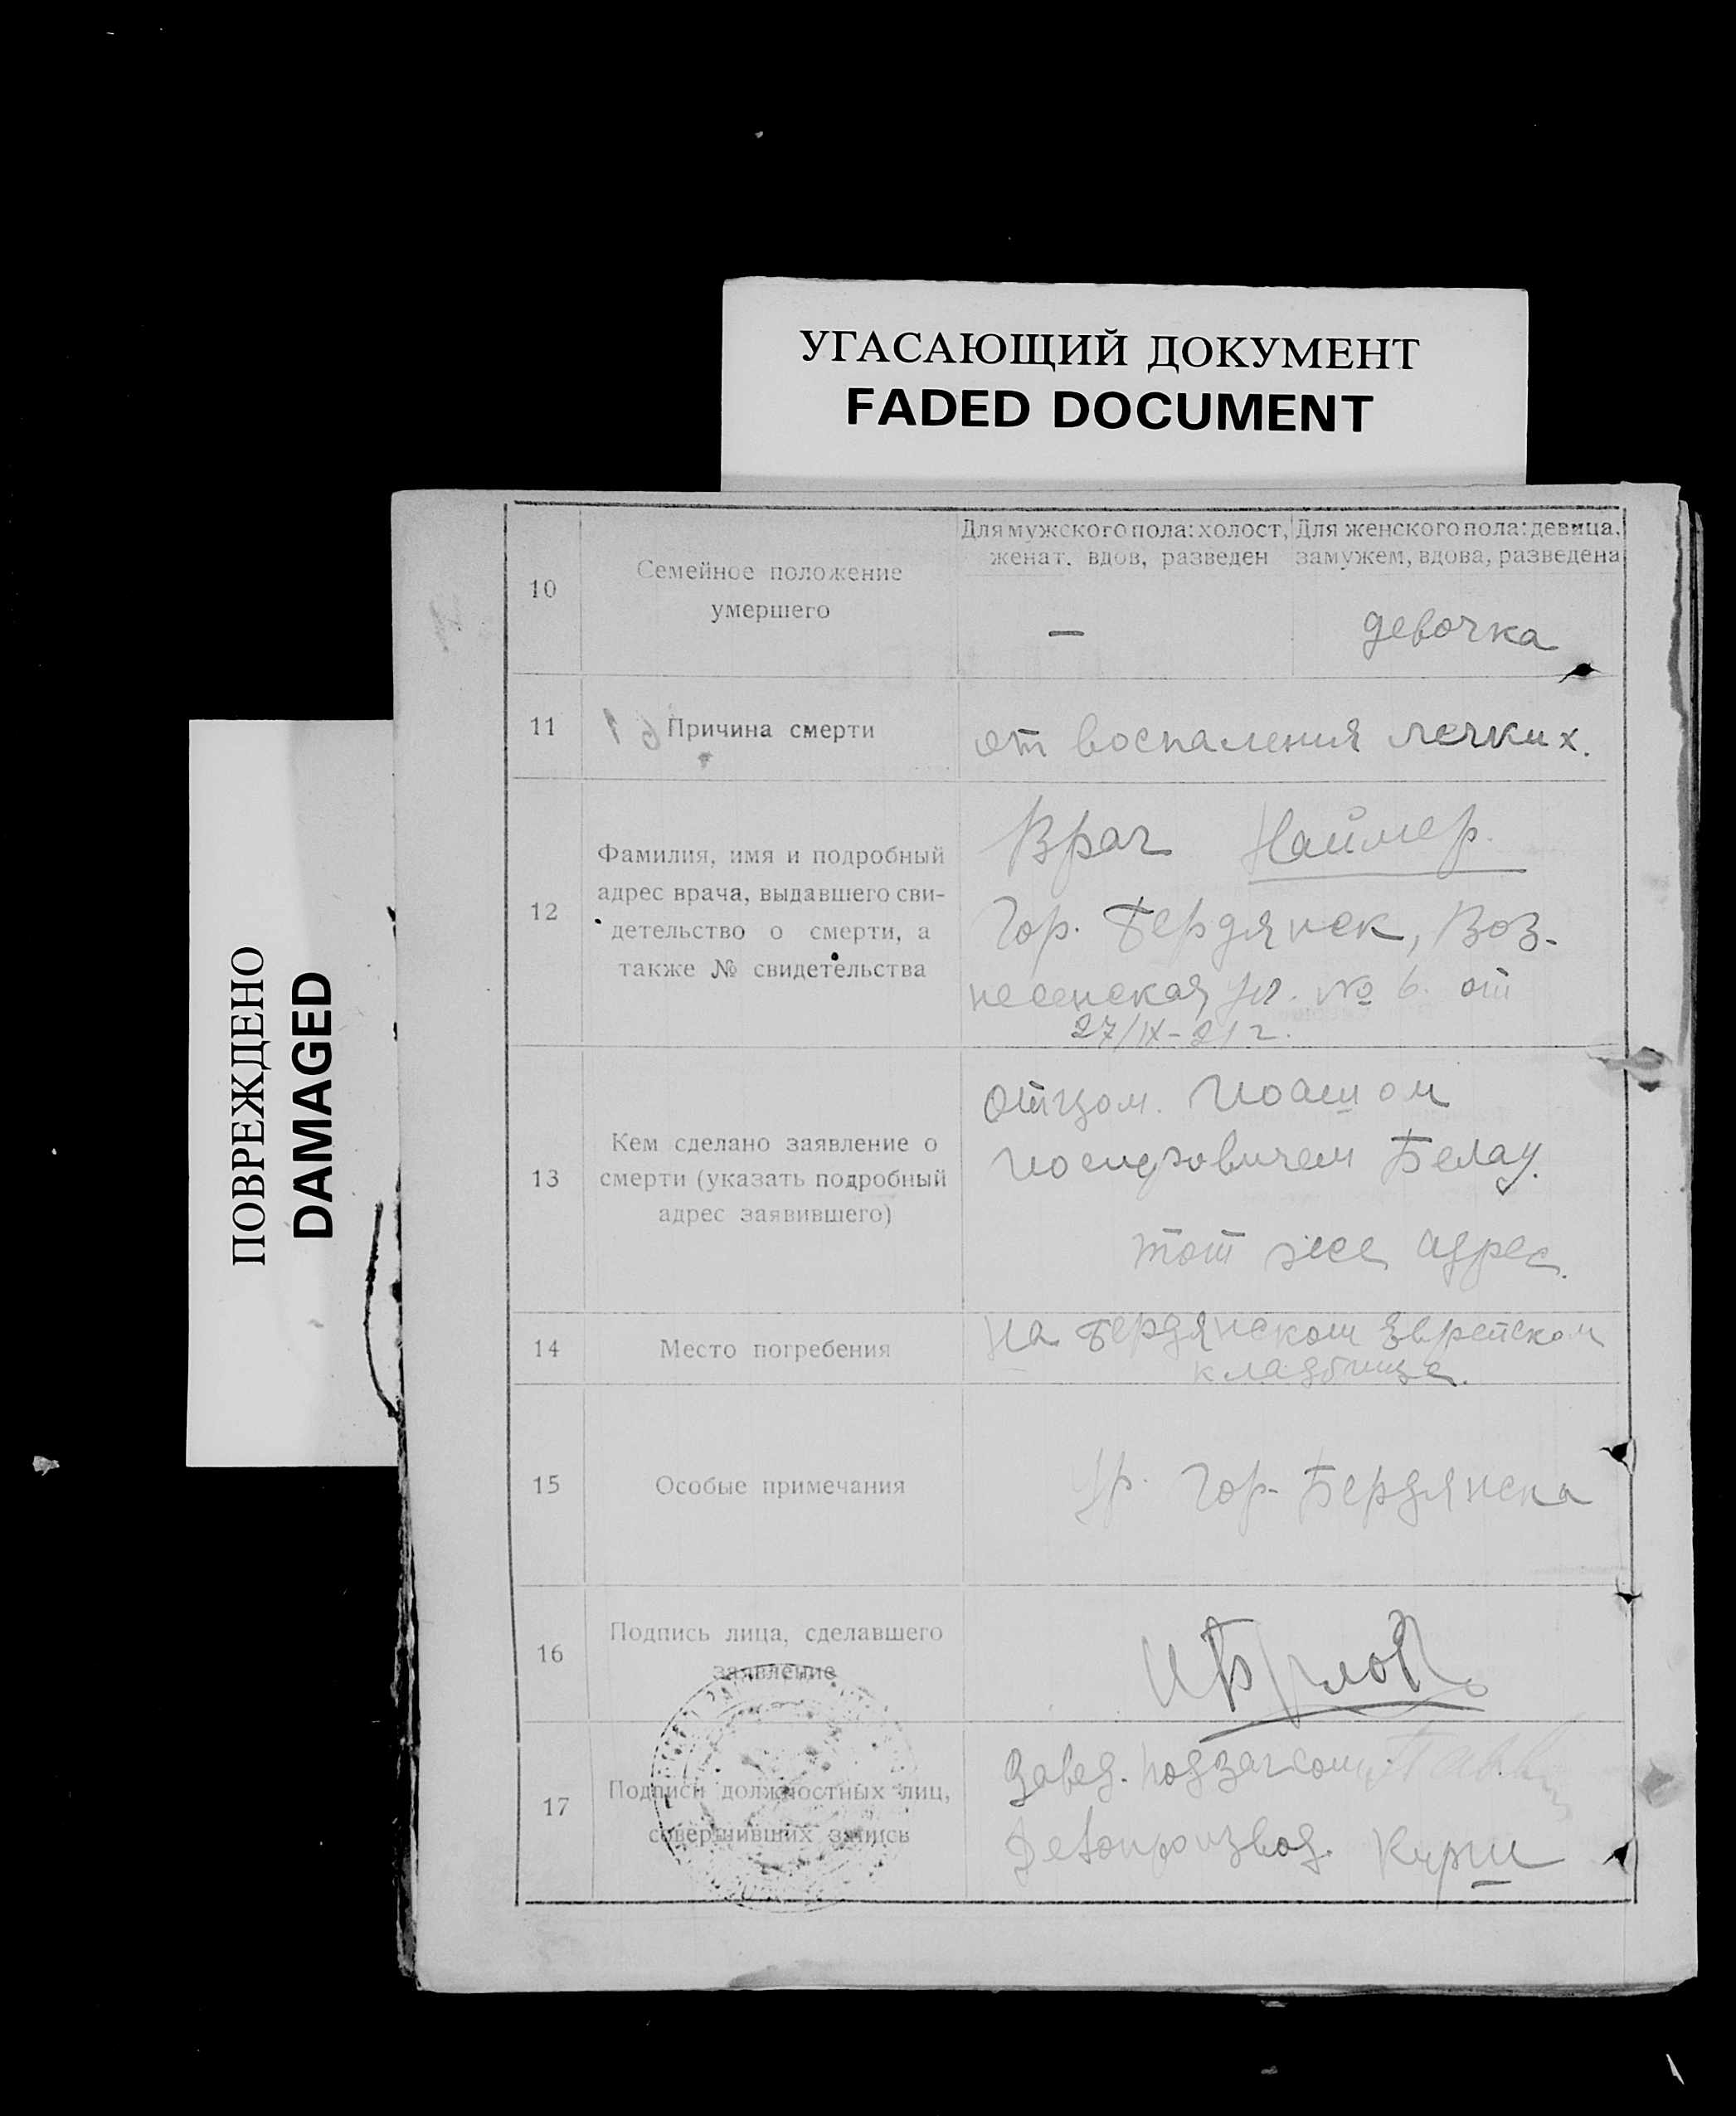 УГАСАЮЩИЙ ДОКУМЕНТ
FADED DOCUMENT
ПОВРЕЖДЕНО
DAMAGED
10
Семейное положение
умершего
Для мужского пола: холост,
женат, вдов, разведен
Для женского пола: девица,
замужем, вдова, разведена
—
девочка
11
Причина смерти
от воспаления легких.
12
Фамилия, имя и подробный
адрес врача, выдавшего сви-
детельство о смерти, а
также № свидетельства
Врач Наймер.
Гор. Бердянск, Воз-
несенская ул. № 6. от
27/IX-21 г.
13
Кем сделано заявление о
смерти (указать подробный
адрес заявившего)
Отцом.
Иосифовичем Белау.
тот же адрес.
14
Место погребения
на Бердянском Еврейском
кладбище.
15
Особые примечания
Гр. Гор. Бердянска
16
Подпись лица, сделавшего
заявление
17
Подписи должностных лиц,
совершивших запись
Завед. подзагсом
Делопроизвод. Курш